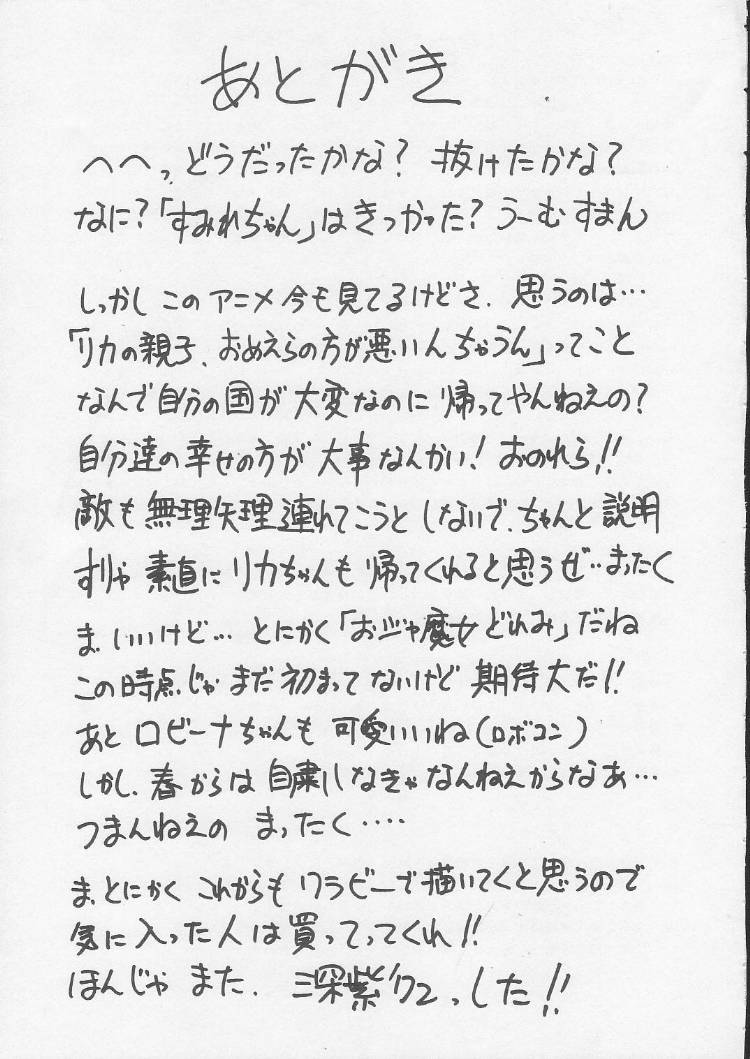 あとがき
へへっ、どうだったかな？ 抜けたかな？
なに？「すみれちゃん」はきつかった？うーむすまん
しっかし このアニメ今も見てるけどさ、思うのは…
「リカの親子、おめえらの方が悪いんちゃうん」ってこと
なんで自分の国が大変なのに帰ってやんねえの？
自分達の幸せの方が大事なんかい！おのれら!!
敵も無理矢理連れてこうとしないで、ちゃんと説明
すりゃ素直にリカちゃんも帰ってくれると思うぜ…まったく
ま、いいけど… とにかく「おジャ魔女どれみ」だね
この時点じゃまだ初まってないけど期待大だ!!
あとロビーナちゃんも可愛いいね(ロボコン)
しかし、春からは自粛しなきゃなんねえからなあ…
つまんねえの まったく‥‥
ま、とにかくこれからもワラビーで描いてくと思うので
気に入った人は買ってってくれ!!
ほんじゃまた、 っした!!